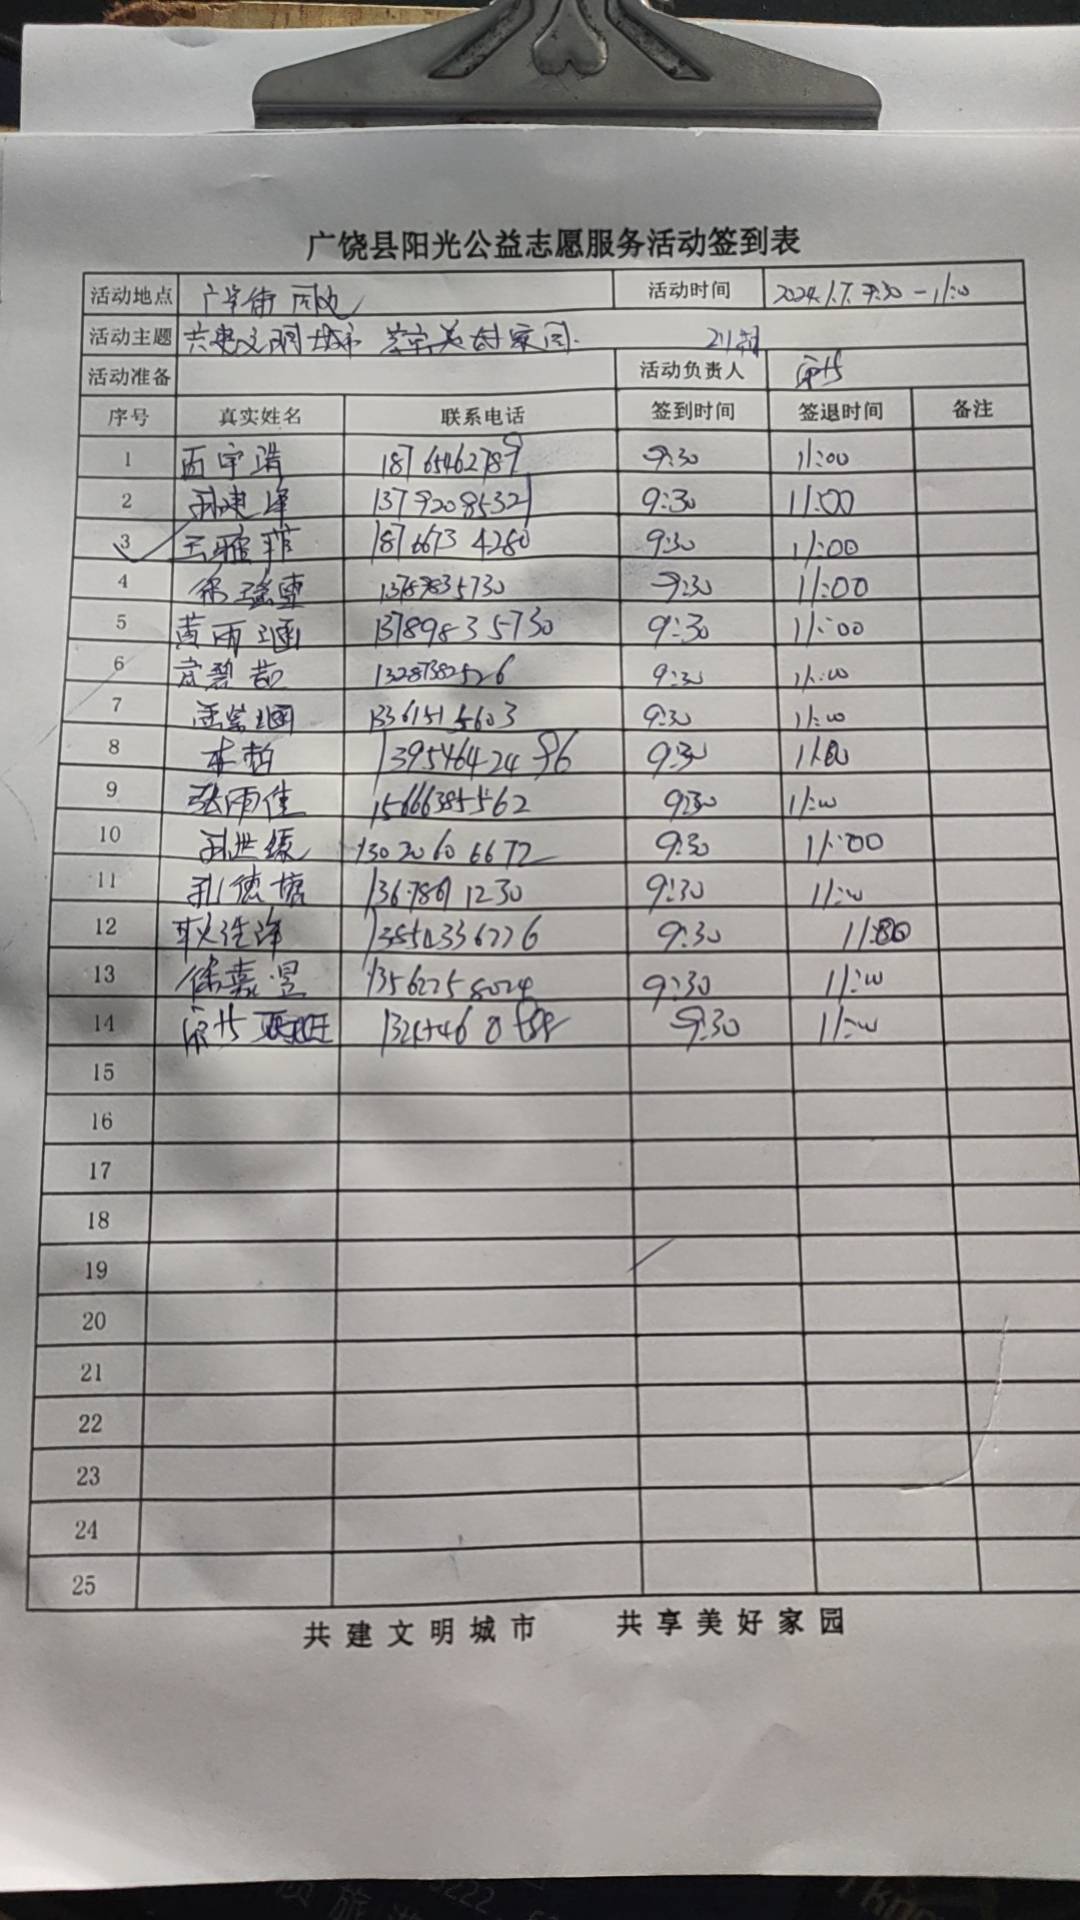 广饶县阳光公益志愿服务活动签到表
活动地点 周边 活动时间 2024.1.7. 9:30-11:00
活动主题 共建文明城市 共享美好家园. 211期
活动准备 活动负责人
序号 真实姓名 联系电话 签到时间 签退时间 备注
1 18765462789 9:30 11:00
2 孙建泽 13792085321 9:30 11:00
3 王雅菲 18766734280 9:30 11:00
4 徐瑞雪 13789835730 9:30 11:00
5 黄雨涵 13789835730 9:30 11:00
6 13287382526 9:30 11:00
7 13361515603 9:30 11:00
8 李柏 13954642496 9:30 11:00
9 张雨佳 15666385562 9:30 11:00
10 孙世缘 13020606672 9:30 11:00
11 9:30 11:00
12 9:30 11:00
13 徐嘉昱 13562758024 9:30 11:00
14 9:30 11:00
15
16
17
18
19
20
21
22
23
24
25
共建文明城市 共享美好家园